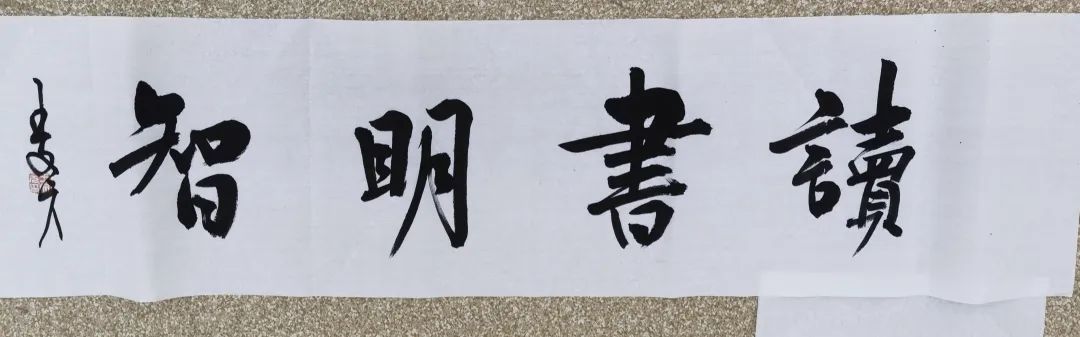 讀書明智